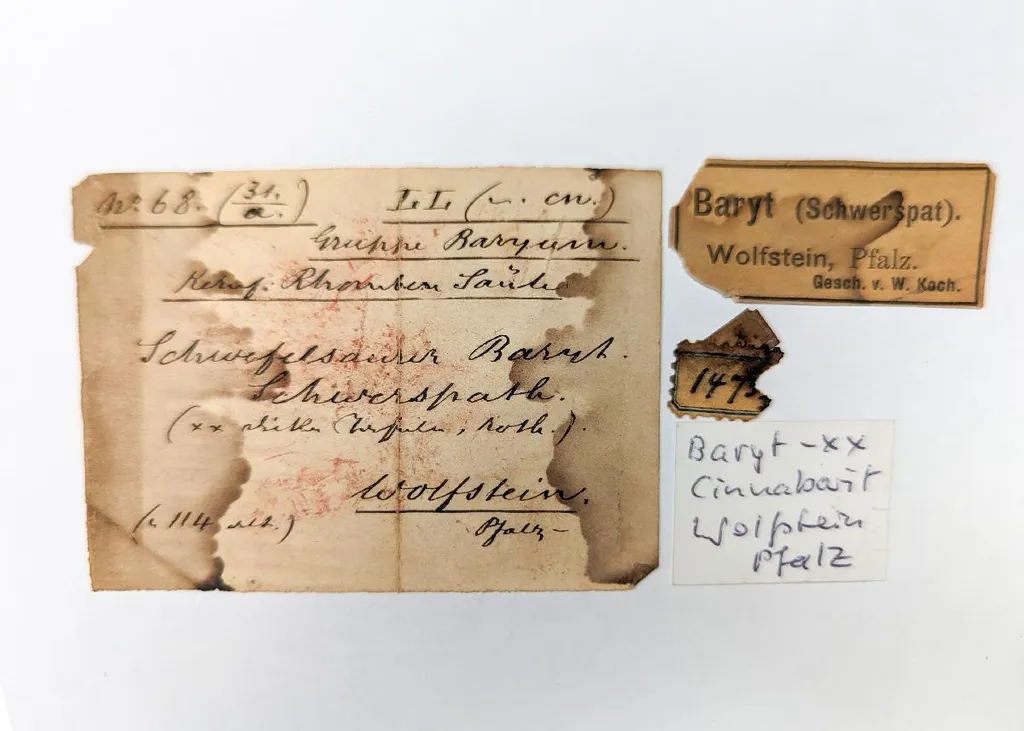 No. 68. (31./a.)
LL (
Gruppe Baryum.
Rhomben Säule
Schwefelsaurer Baryt.
Schwerspath.
(xx dicke Tafeln, roth.)
Wolfstein.
Pfalz
114
Baryt (Schwerspat).
Wolfstein, Pfalz.
Gesch. v. W. Koch.
147
Baryt - xx
Cinnabarit
Wolfstein
Pfalz